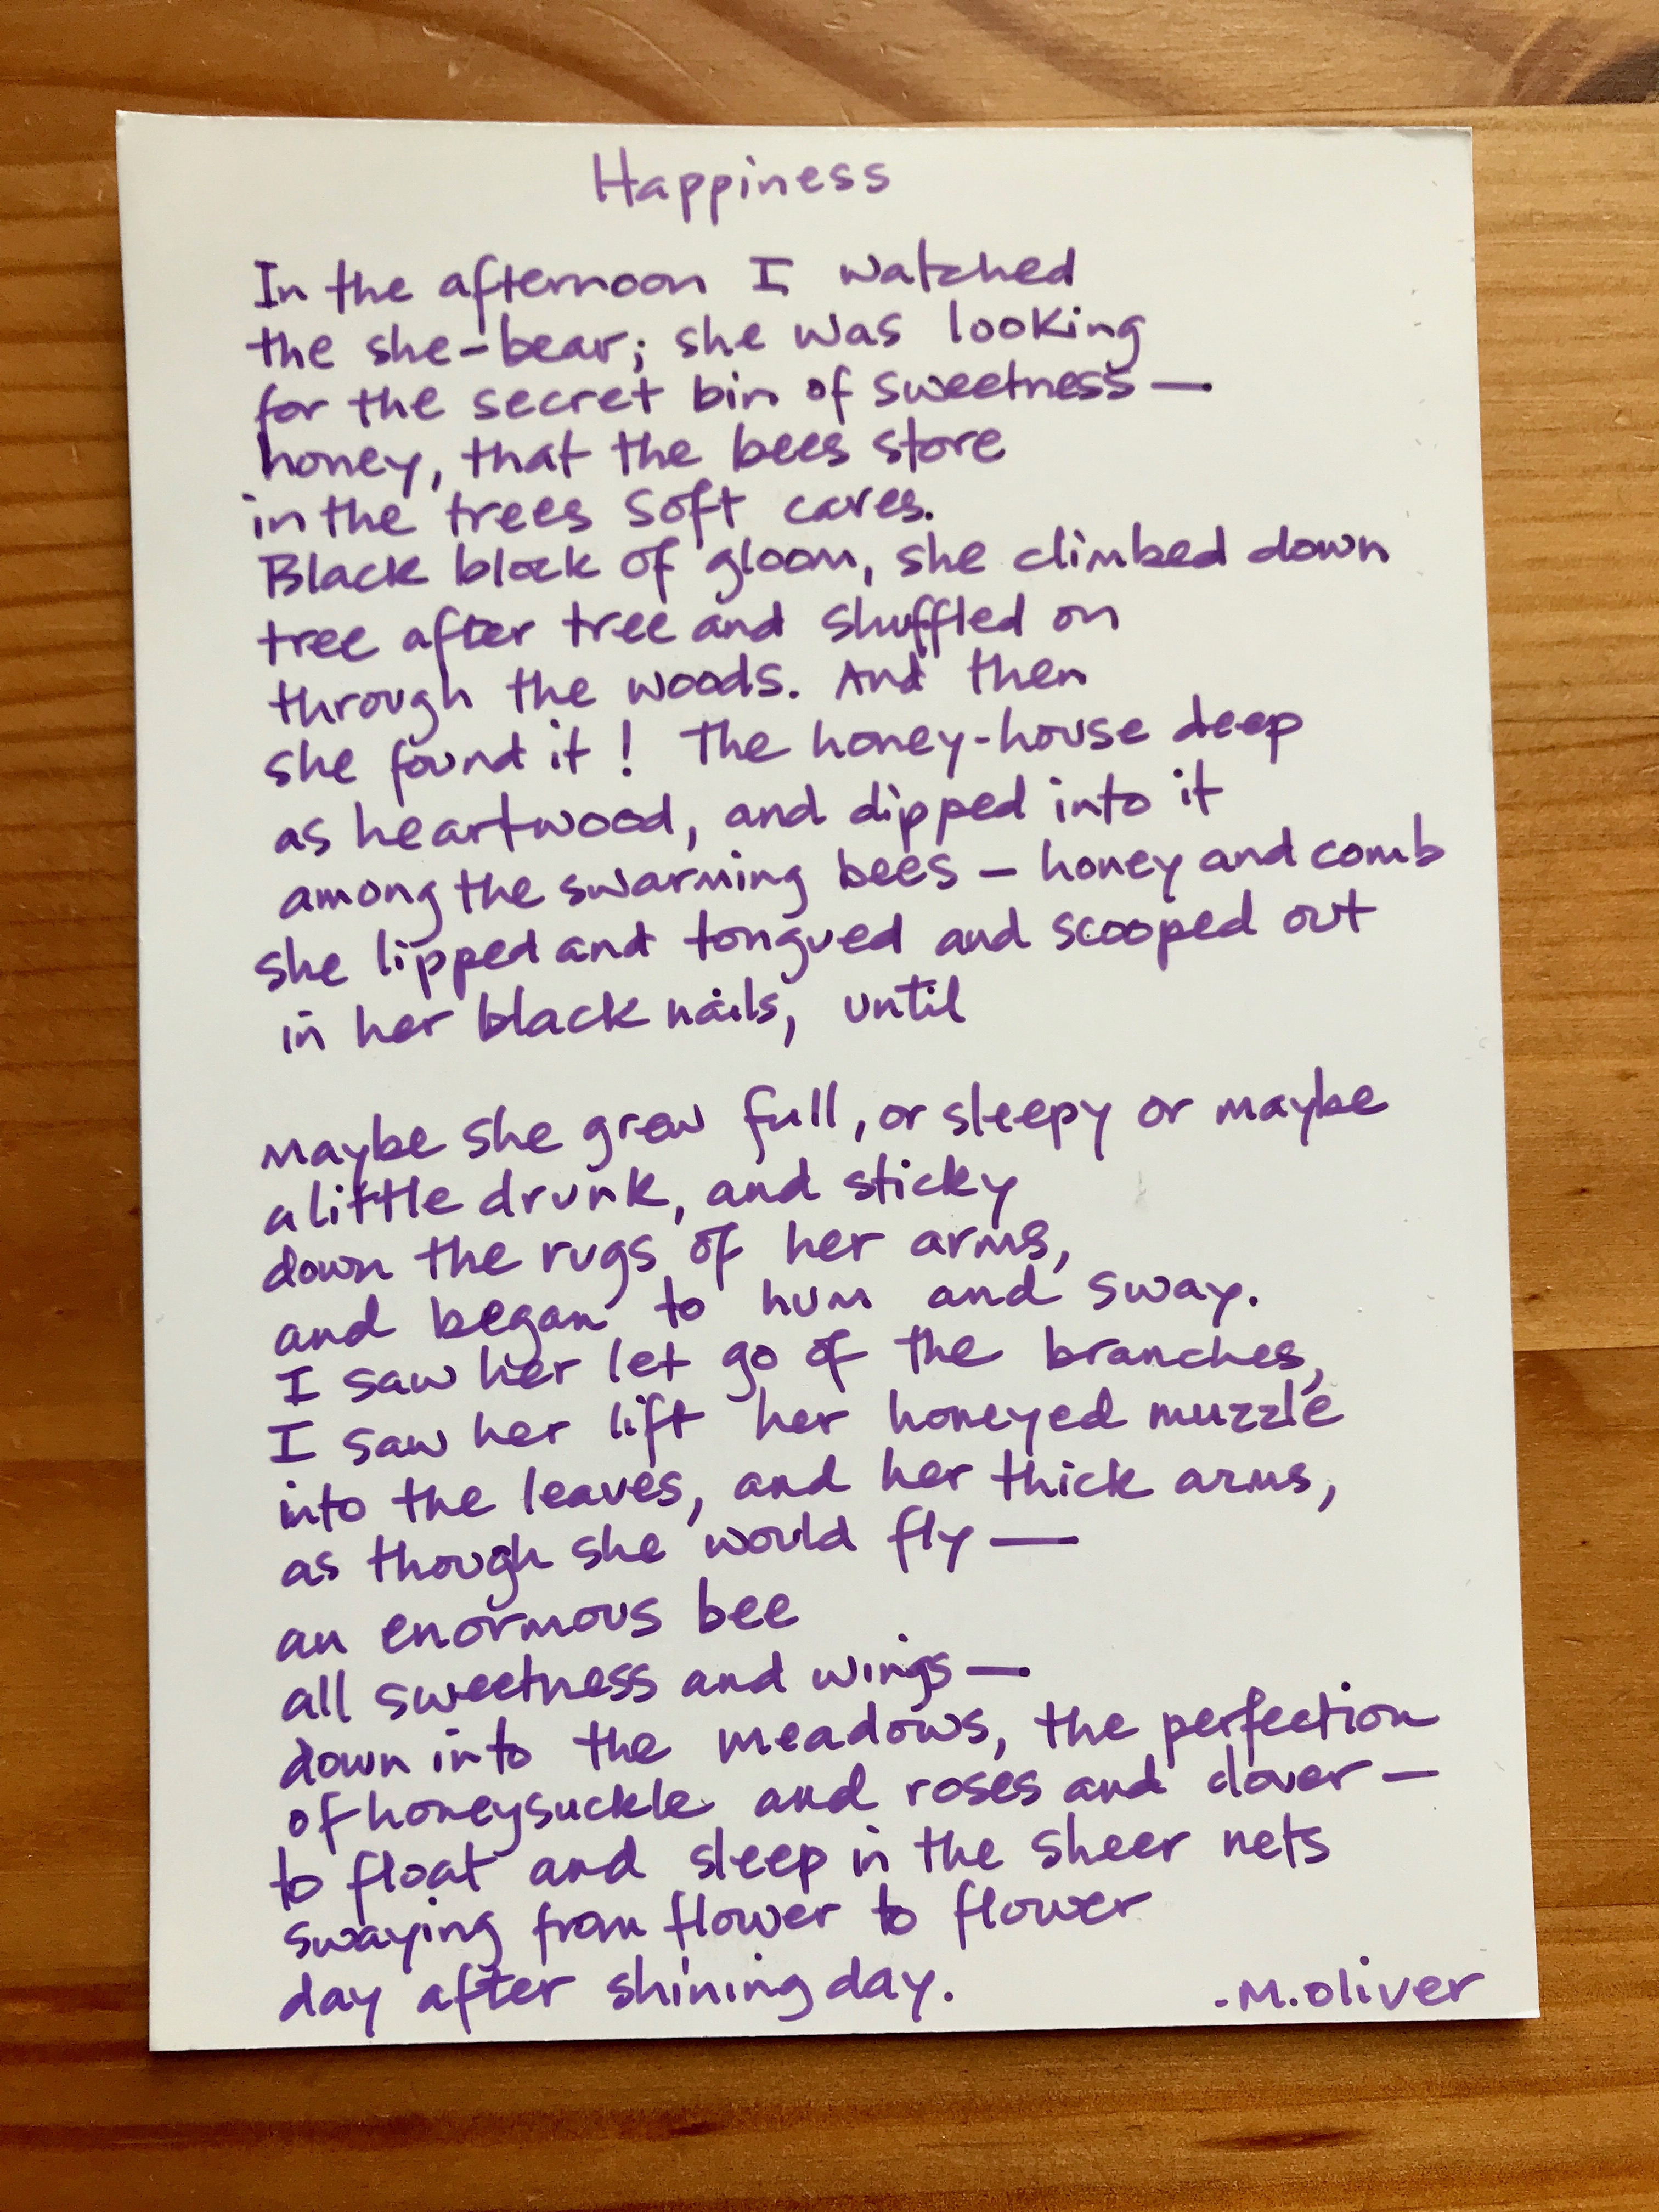 Happiness
In the afternoon I watched
the she-bear; she was looking
for the secret bin of sweetness —
honey, that the bees store
in the trees soft caves.
Black block of gloom, she climbed down
tree after tree and shuffled on
through the woods. And then
she found it! The honey-house deep
as heartwood, and dipped into it
among the swarming bees – honey and comb
she lipped and tongued and scooped out
in her black nails, until
Maybe she grew full, or sleepy or maybe
a little drunk, and sticky
down the rugs of her arms,
and began to hum and sway.
I saw her let go of the branches,
I saw her lift her honeyed muzzle
into the leaves, and her thick arms,
as though she would fly —
an enormous bee
all sweetness and wings —
down into the meadows, the perfection
of honeysuckle and roses and clover –
to float and sleep in the sheer nets
swaying from flower to flower
day after shining day.
-M. Oliver